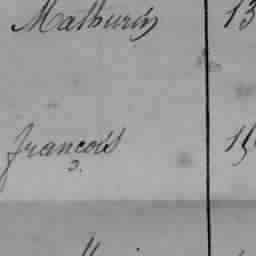 Mathurin 13
francois
2.